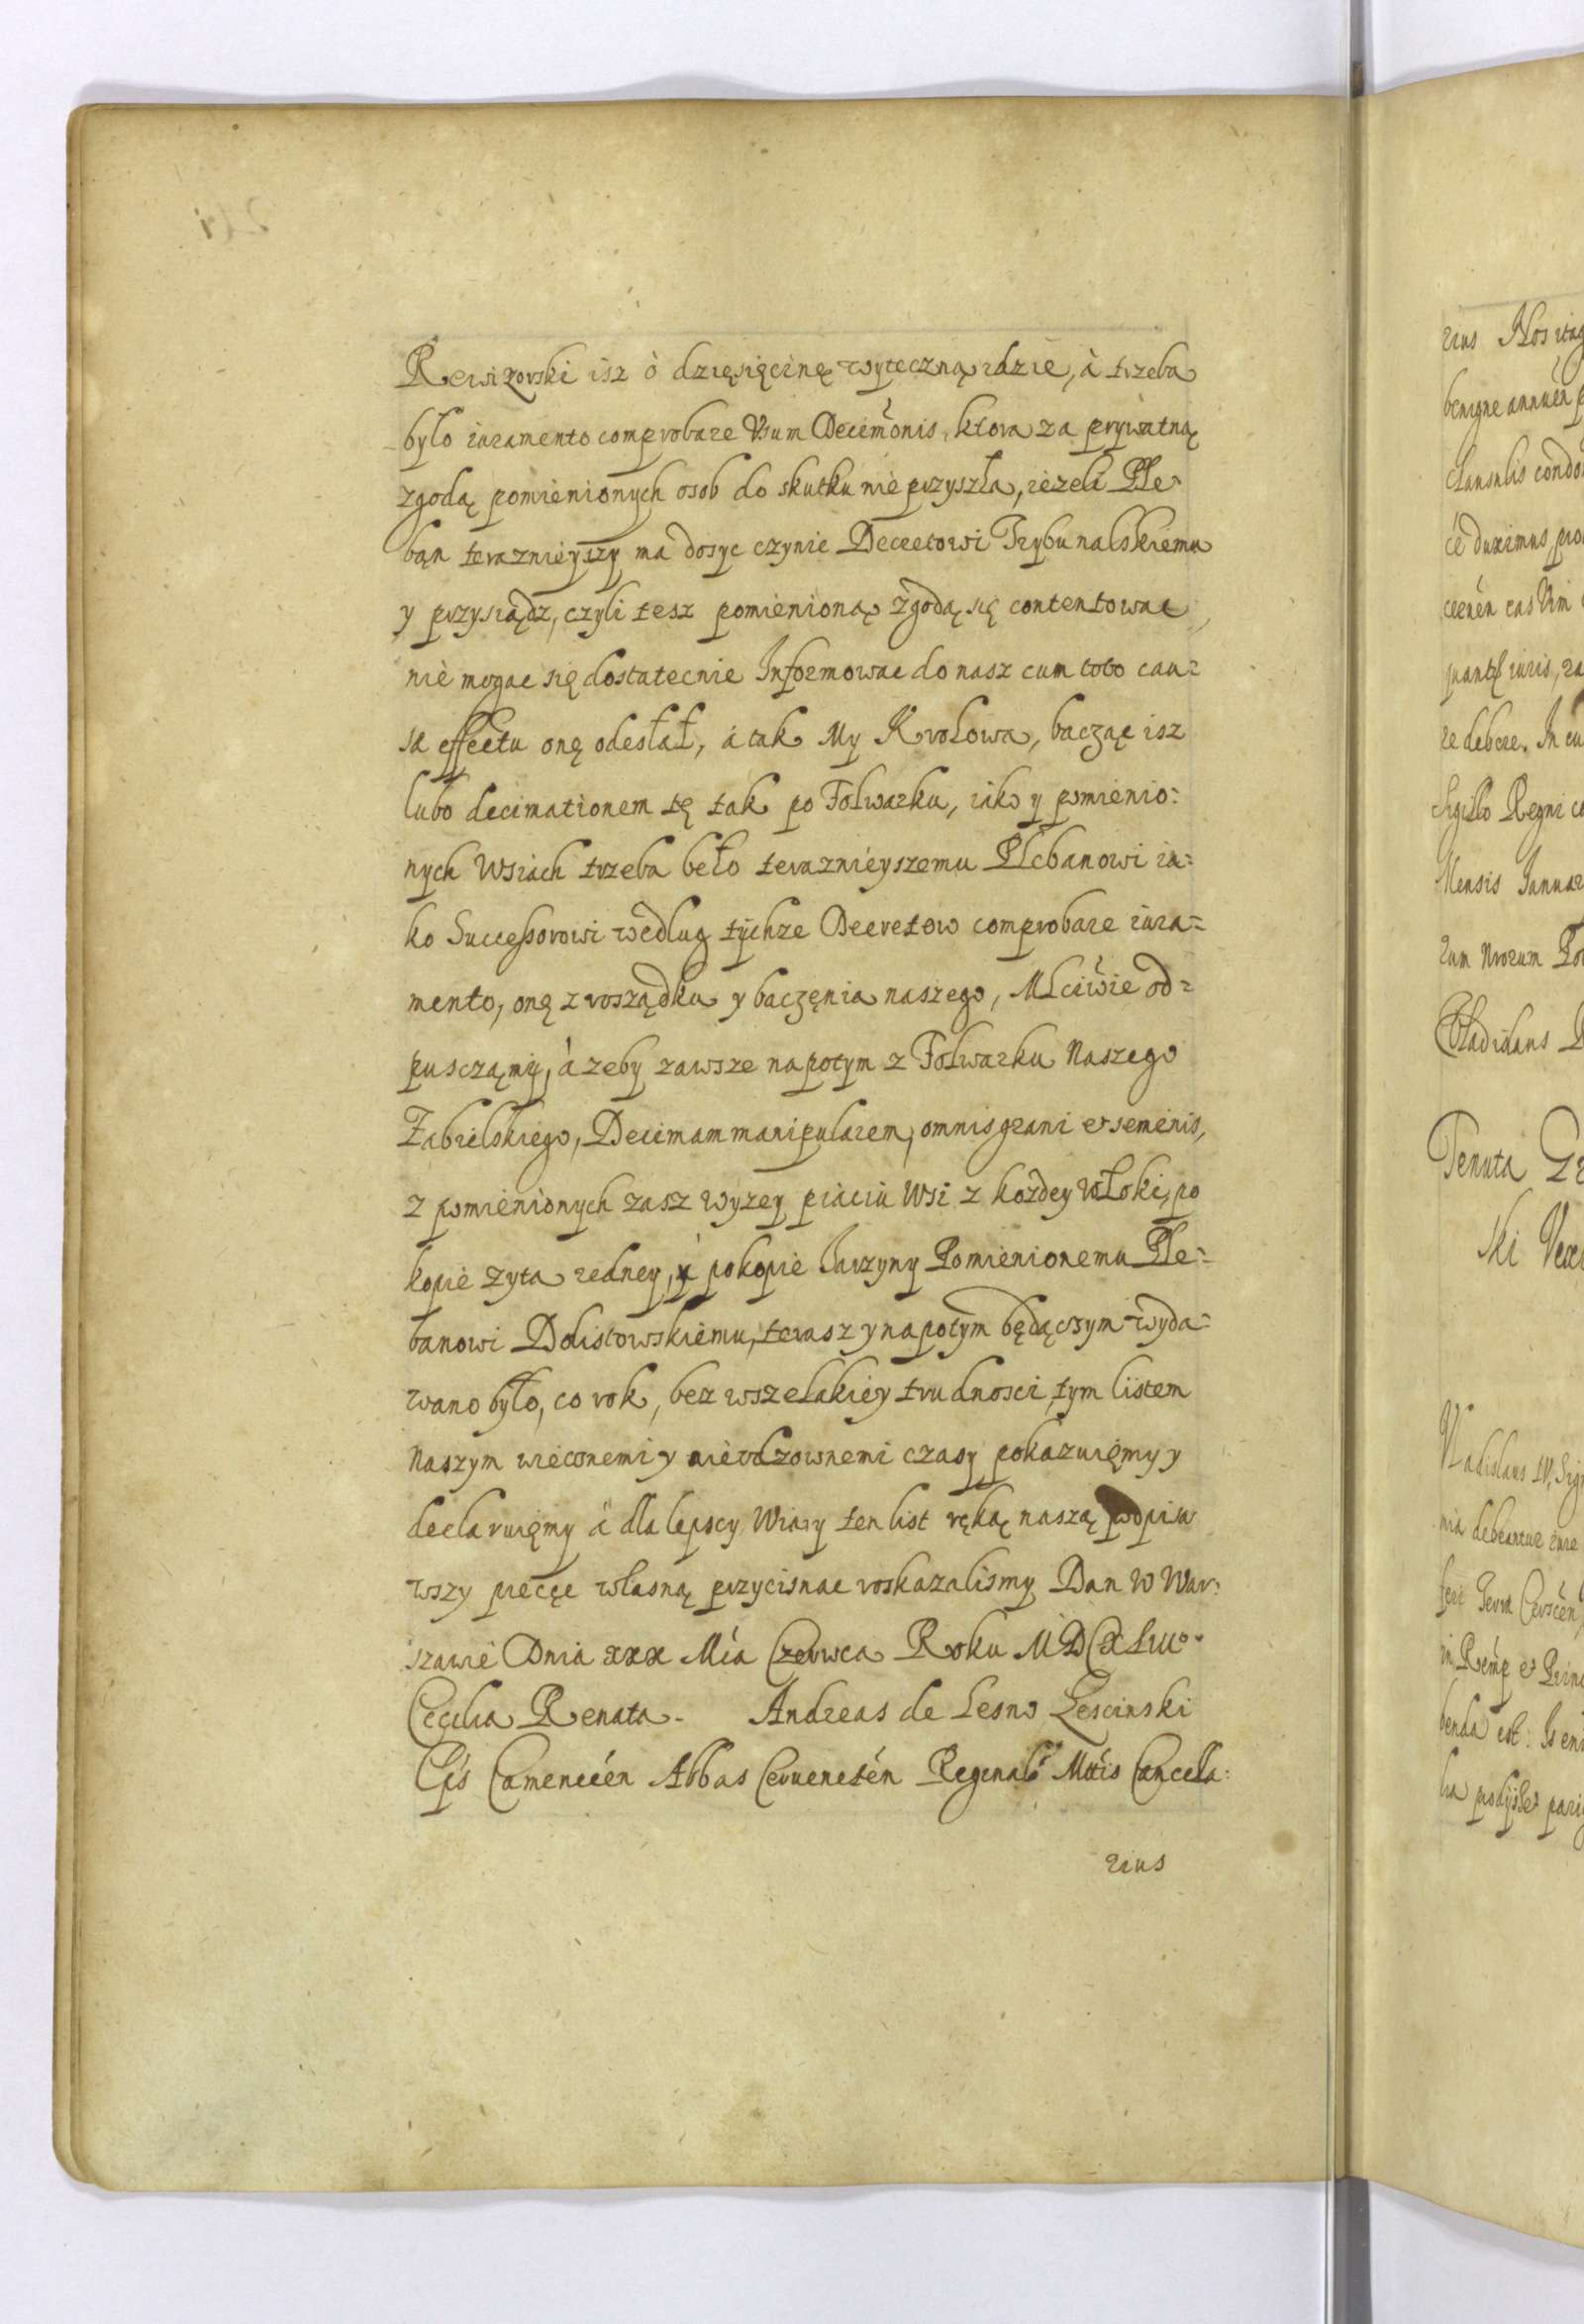 Rewizorski isz ò dzięsięcinę wyteczną idzie, à trzeba
było iuramento comprobare Vsum Decim̃onis, ktora za prywatną
zgodą pomienionych osob do skutku nie przyszła, ieżeli Ple-
ban teraznieyszy ma dosyc czynic Decretowi Trybunalskiemu
y przysiądz, czyli tesz pomienioną zgodą się contentowac,
nie mogac się dostatecnie Informowac do nasz cum toto cau-
sæ effectu onę odesłał, á tak My Krolowa, bacząc isz
lubo decimationem tę tak po Folwarku, iako y pomienio-
nych Wsiach trzeba beło teraznieyszemu Plebanowi ia-
ko Successorowi wedlug tychze Decretow comprobare iura-
mento, onę z rosządku y baczęnia naszego, Młciwie od-
pusczamy, á zeby zawsze napotym z Folwarku Naszego
Zabielskiego, Decimam manipularem, omnis grani et seminis,
z pomienionych zasz wyzey piaciu Wsi z kozdey Włoki, po
kopie zyta iedney, y pokopie Jarzyny Pomienionemu Ple-
banowi Dolistowskiemu, terasz y napotym będączym wyda-
wano było, co rok, bez wszelakiey trudnosci, tym listem
Naszym wiecznemi y nieodzownemi czasy pokazuięmy y
declaruięmy á dla lepscy Wiary ten list ręką naszą podpisa
wszy piecęc własną przycisnac roskazalismy Dan W War-
szawie Dnia xxx Mía Czerwca Roku
Cecilia Renata. Andreas de Lesno Lescinski
Eṕs Camenecén Abbas Cervenetén Reginalis Mttis Cancella-
rius
rius Nos itaq
benigne annuen
clausulis condo
cé duximus pro
ceenén eas Vim
quantū iuris, ra
re debere. In cu
Sigillo Regni co
Mensis Januar
rum Nrorum Po
Vladislaus
Tenuta
ski
Vladislaus IV, Sigi
nia debeantur iure
in Remp et Prin
benda est: Is eni